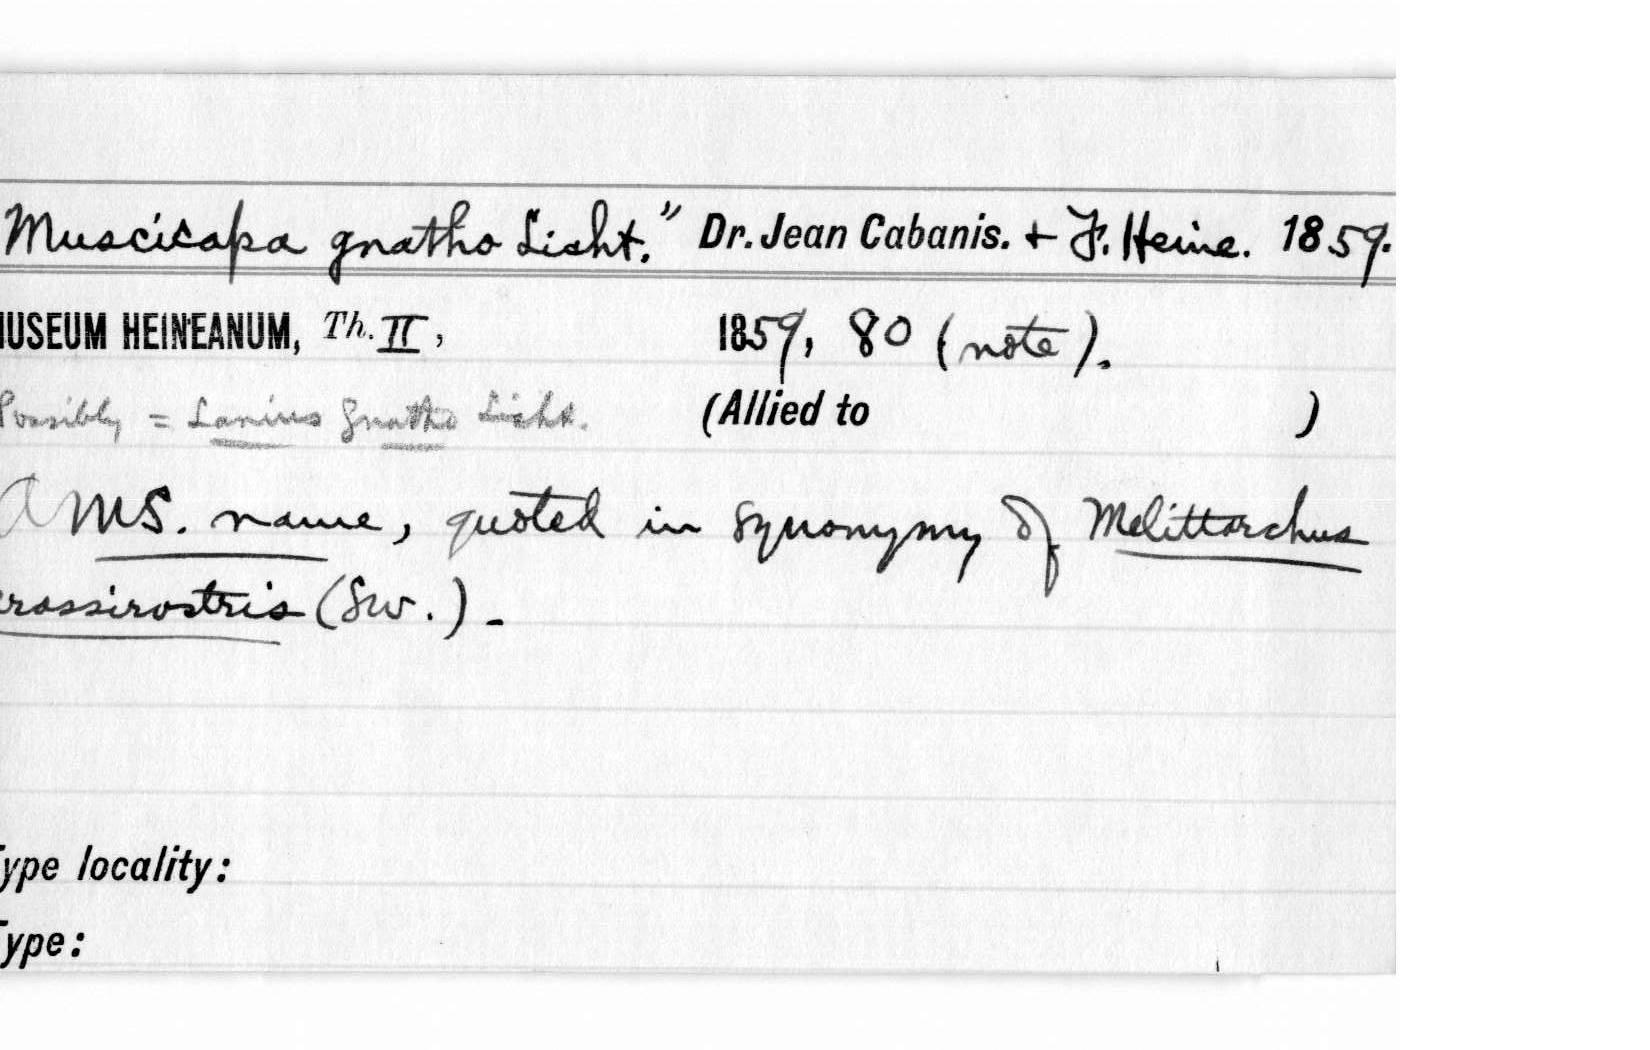 Muscicapa gnatho Licht." Dr. Jean Cabanis. + F. Heine. 1859.
MUSEUM HEINEANUM, Th. II, 1859, 80 (note).
Possibly = Lanius Gnatho Licht. (Allied to )
A MS. name, quoted in synonymy of Melittarchus
crassirostris (Sw.).-
Type locality:
Type: